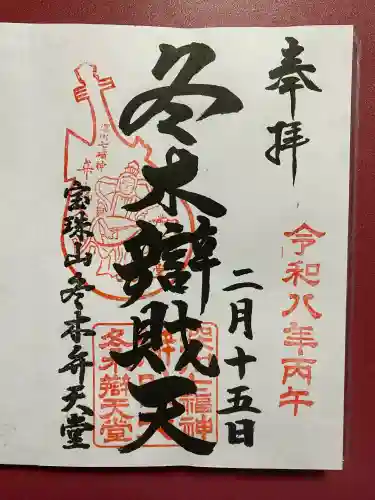 奉拝
令和八年丙午
二月十五日
冬木辯財天
深川七福神
宝珠山冬木弁天堂
深川七福神
冬木辯天堂